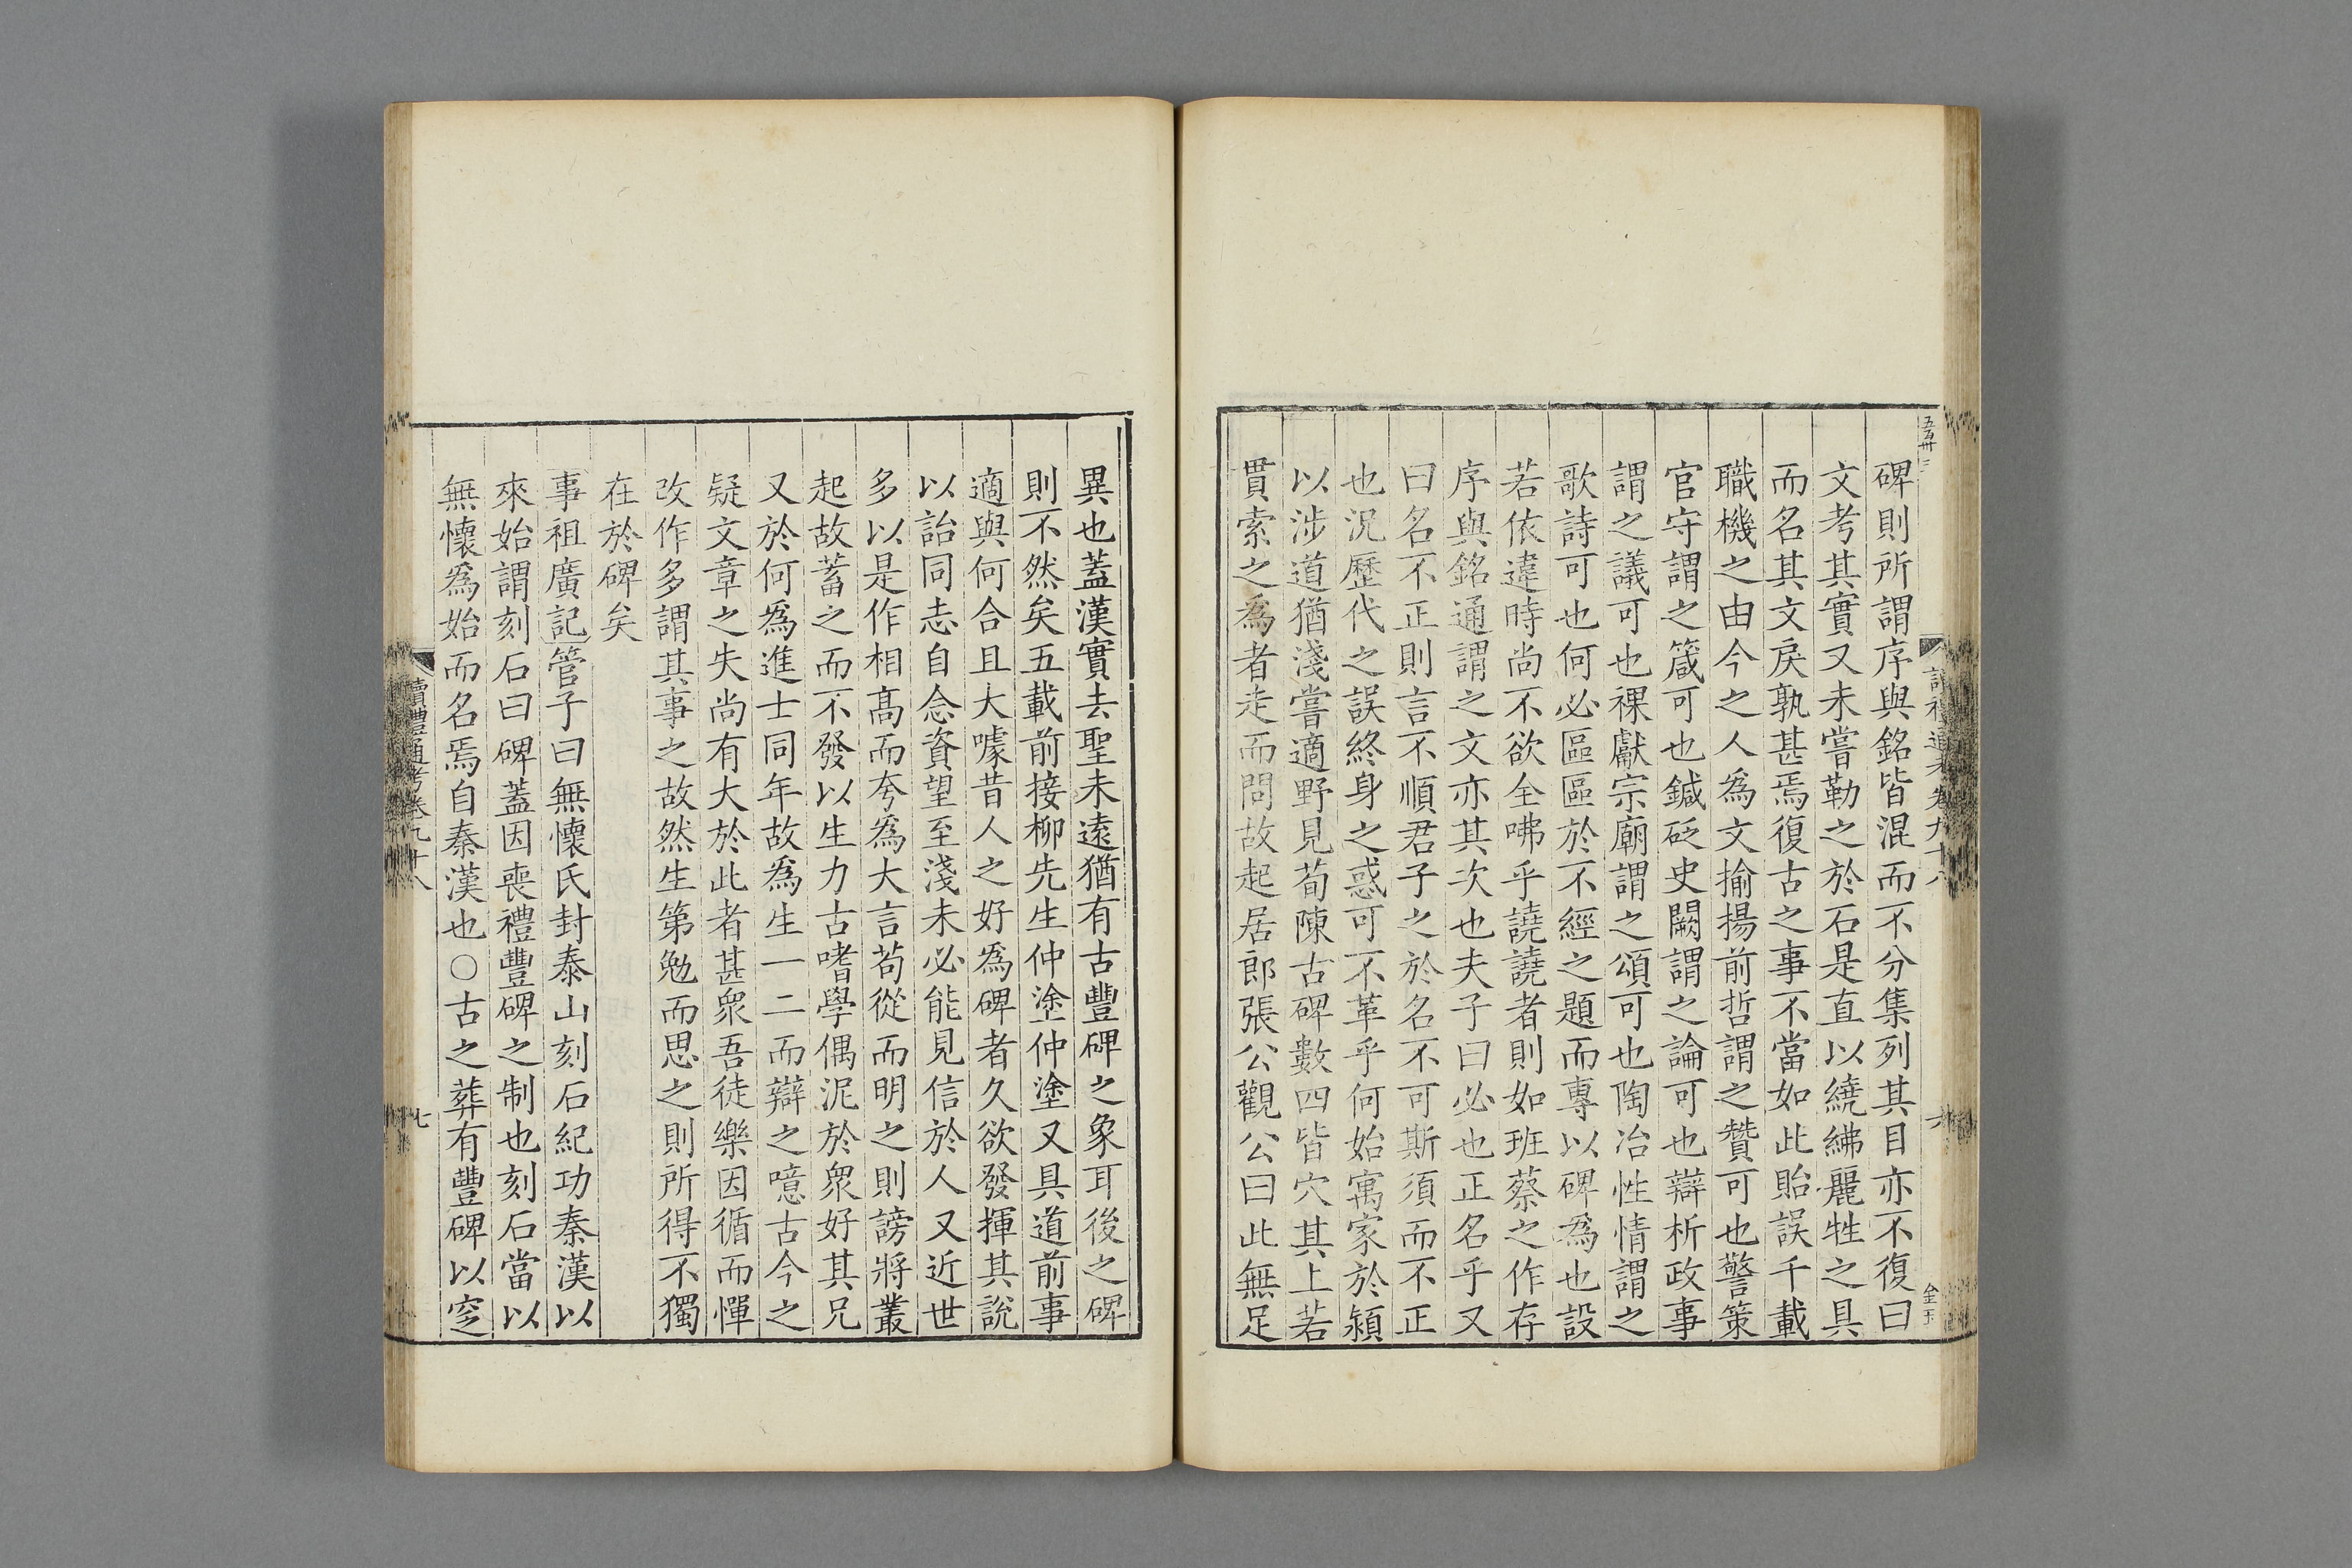 碑則所謂序與銘皆混而不分集列其目亦不復曰
文考其實又未嘗勒之於石是直以繞紼麗牲之具
而名其文戾孰甚焉復古之事不當如此貽誤千載
職機之由今之人爲文揄揚前哲謂之贊可也警策
官守謂之箴可也鍼砭史闕謂之論可也辯析政事
謂之議可也祼獻宗廟謂之頌可也陶冶性情謂之
歌詩可也何必區區於不經之題而專以碑爲也設
若依違時尚不欲全咈乎譊譊者則如班蔡之作存
序與銘通謂之文亦其次也夫子曰必也正名乎又
曰名不正則言不順君子之於名不可斯須而不正
也況歷代之誤終身之惑可不革乎何始寓家於潁
以涉道猶淺嘗適野見荀陳古碑數四皆穴其上若
貫索之爲者走而問故起居郎張公觀公曰此無足
六
異也蓋漢實去聖未遠猶有古豐碑之象耳後之碑
則不然矣五載前接柳先生仲塗仲塗又具道前事
適與何合且大噱昔人之好爲碑者久欲發揮其說
以詒同志自念資望至淺未必能見信於人又近世
多以是作相高而夸爲大言苟從而明之則謗將叢
起故蓄之而不發以生力古嗜學偶泥於衆好其兄
又於何爲進士同年故爲生一二而辯之噫古今之
疑文章之失尚有大於此者甚衆吾徒樂因循而憚
改作多謂其事之故然生第勉而思之則所得不獨
在於碑矣
事祖廣記管子曰無懷氏封泰山刻石紀功秦漢以
來始謂刻石曰碑蓋因喪禮豐碑之制也刻石當以
無懷爲始而名焉自秦漢也○古之葬有豐碑以窆
讀禮通考卷九十八
七